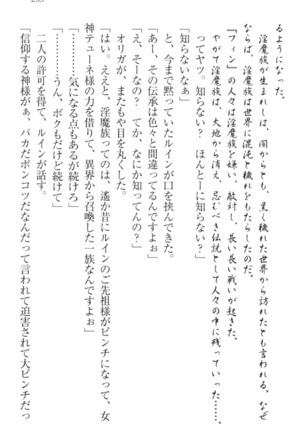 るようになった。
淫魔族が生まれしは、闇からとも、黒く穢れた世界から訪れたとも言われる。なぜならば、淫魔族は世界に混沌と穢れをもたらしたのだ。
『フィン』の人々は淫魔族を嫌い、敵対し、長い長い戦いが起きた。
やがて淫魔族は、大地から消え、忌むべき伝説として人々の中に残っていった……
ってヤツ。知らない？　ほんとーに知らない？」
「知らないなぁ」
と、今まで黙っていたルインが口を挟んできた。
「あー、その伝承は色々と間違ってるんですよぉ」
「え、そーなの？　てか、なにか知ってんの？」
オリガが、またもや目を丸くした。
「はい。ええと、淫魔族ってのは、遙か昔にルインのご先祖様がピンチになって、女神テューネ様の力を借りて、異界から召喚した一族なんですよぉ」
「………気になる点もあるが続けろ」
「……うん、ボクもだけど続けて」
二人の許可を得て、ルインが話す。
「信仰する神様がぁ、バカだポンコツだなんだって言われて迫害されて大ピンチだっ